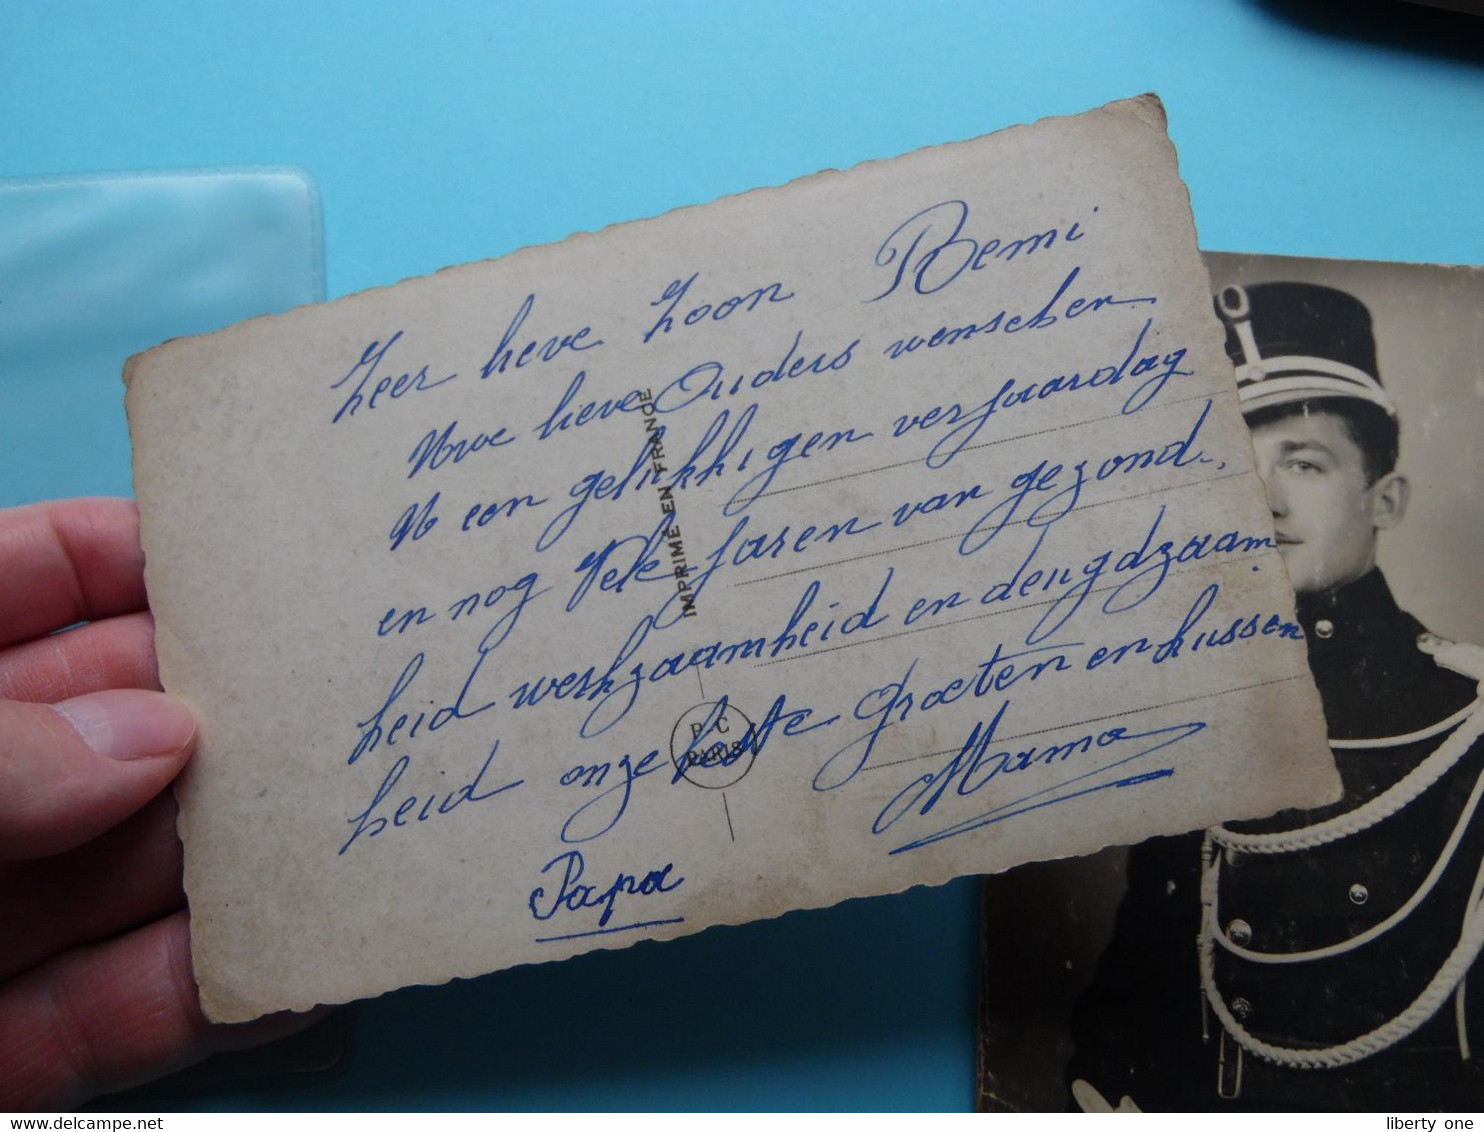 Zeer lieve Zoon Remi
Uwe lieve Ouders wenschen
U een gelukkigen verjaardag
en nog Vele Jaren van gezond-
heid werkzaamheid en deugdzaam
heid onze beste Groeten en kussen
Mama
Papa
IMPRIMÉ EN FRANCE
P C
PARIS
liberty one